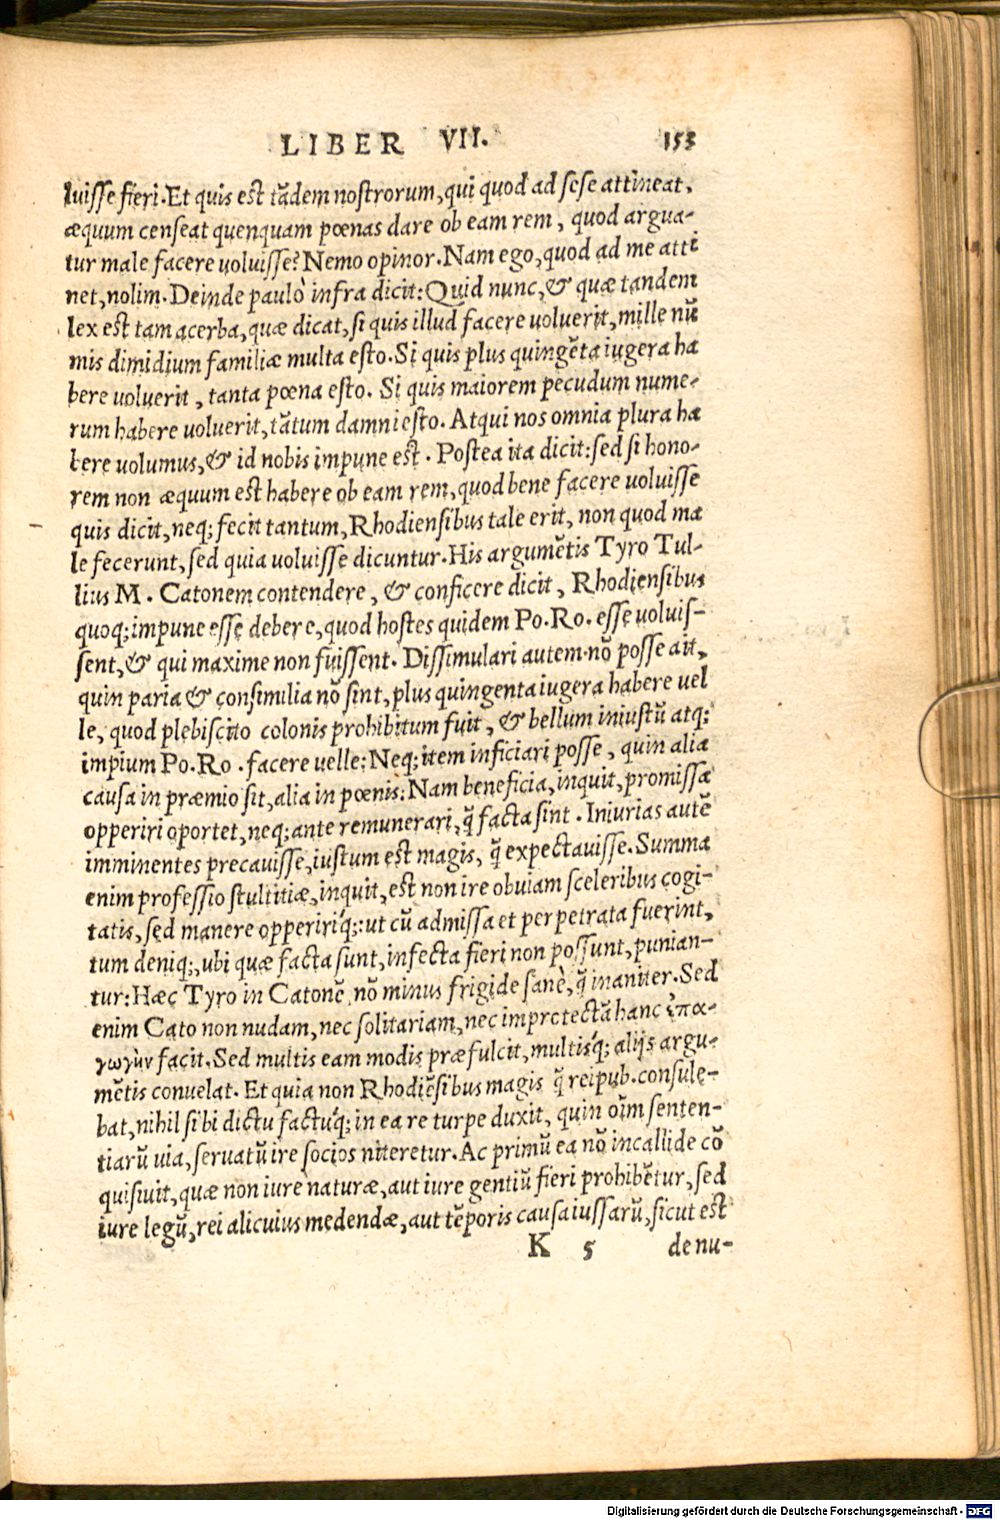 LIBER VII. 153
luisse fieri. Et quis est tãdem nostrorum, qui quod ad sese attineat,
æquum censeat quenquam pœnas dare ob eam rem, quod argua-
tur male facere uoluisse? Nemo opinor. Nam ego, quod ad me atti
net, nolim. Deinde paulò infra dicit: Quid nunc, & quæ tandem
lex est tam acerba, quæ dicat, si quis illud facere uoluerit, mille nũ
mis dimidium familiæ multa esto. Si quis plus quingẽta iugera ha
bere uoluerit, tanta pœna esto. Si quis maiorem pecudum nume-
rum habere uoluerit, tãtum damni esto. Atqui nos omnia plura ha
bere uolumus, & id nobis impune est. Postea ita dicit: sed si hono-
rem non æquum est habere ob eam rem, quod bene facere uoluisse
quis dicit, neq; fecit tantum, Rhodiensibus tale erit, non quod ma
le fecerunt, sed quia uoluisse dicuntur. His argumẽtis Tyro Tul-
lius M. Catonem contendere, & conficere dicit, Rhodiensibus
quoq; impune esse debere, quod hostes quidem Po. Ro. esse uoluis-
sent, & qui maxime non fuissent. Dissimulari autem nõ posse ait,
quin paria & consimilia nõ sint, plus quingenta iugera habere uel
le, quod plebiscito colonis prohibitum fuit, & bellum iniustũ atq;
impium Po. Ro. facere uelle: Neq; item inficiari posse, quin alia
causa in præmio sit, alia in pœnis: Nam beneficia, inquit, promissa
opperiri oportet, neq; ante remunerari, q̃ facta sint. Iniurias autẽ
imminentes precauisse, iustum est magis, q̃ expectauisse. Summa
enim professio stultitiæ, inquit, est non ire obuiam sceleribus cogi-
tatis, sed manere oppeririq́;: ut cũ admissa et perpetrata fuerint,
tum deniq;, ubi quæ facta sunt, infecta fieri non possunt, punian-
tur: Hæc Tyro in Catonẽ nõ minus frigide sanè, q̃ inaniter. Sed
enim Cato non nudam, nec solitariam, nec improtectã hanc ἐπα-
γωγὴν facit. Sed multis eam modis præfulcit, multisq́; alijs argu-
mẽtis conuelat. Et quia non Rhodiẽsibus magis q̃ reipub. consule-
bat, nihil sibi dictu factuq́; in ea re turpe duxit, quin oĩm senten-
tiarũ uia, seruatũ ire socios niteretur. Ac primũ ea nõ incallide cõ
quisiuit, quæ non iure naturæ, aut iure gentiũ fieri prohibẽtur, sed
iure legũ, rei alicuius medendæ, aut tẽporis causa iussarũ, sicut est
K 5 de nu-
Digitalisierung gefördert durch die Deutsche Forschungsgemeinschaft - DFG